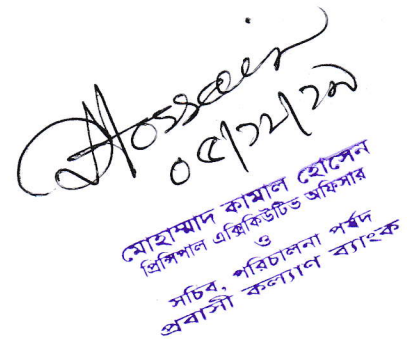 Hossain
০৫/১২/২৯
মোহাম্মাদ কামাল হোসেন
প্রিন্সিপাল এক্সিকিউটিভ অফিসার
ও
সচিব, পরিচালনা পর্ষদ
প্রবাসী কল্যাণ ব্যাংক